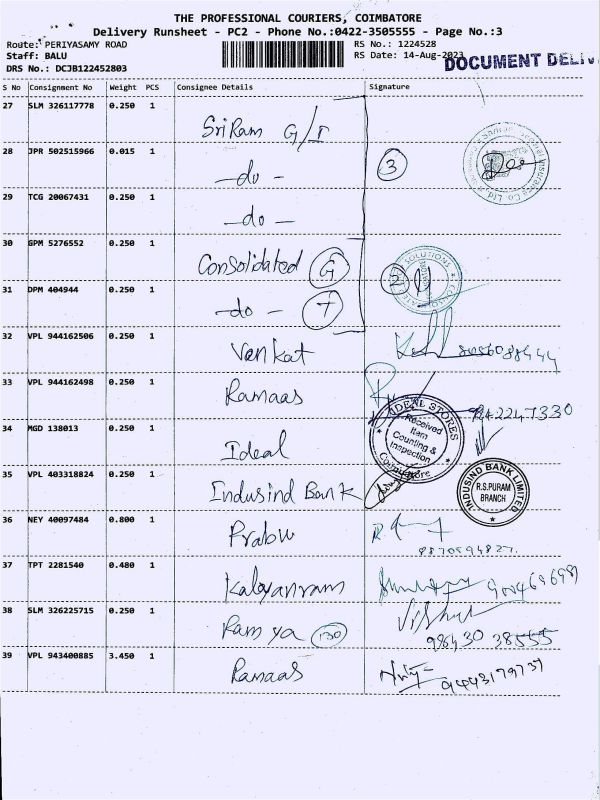 THE PROFESSIONAL COURIERS, COIMBATORE
Delivery Runsheet - PC2 - Phone No.:0422-3505555 - Page No.:3
Route: PERIYASAMY ROAD
Staff: BALU
DRS No.: DCJB122452803
RS No.: 1224528
RS Date: 14-Aug-2023
DOCUMENT DELIV
S No Consignment No Weight PCS Consignee Details Signature
27 SLM 326117778 0.250 1 Sri Ram G/I
28 JPR 502515966 0.015 1 -do- 3
29 TCG 20067431 0.250 1 -do-
30 GPM 5276552 0.250 1 Consolidated G
31 DPM 404944 0.250 1 -do- T 2
32 VPL 944162506 0.250 1 Venkat
33 VPL 944162498 0.250 1 Ramaas 9842247330
34 MGD 138013 0.250 1 Ideal
IDEAL STORES
Received
Item
Counting &
Inspection
Coimbatore
35 VPL 403318824 0.250 1 Indusind Bank
INDUSIND BANK LIMITED
R.S.PURAM
BRANCH
36 NEY 40097484 0.800 1 Prabu
8870594827
37 TPT 2281540 0.480 1 Kalyanram
38 SLM 326225715 0.250 1 Ramya 130
98430 38555
39 VPL 943400885 3.450 1 Ramaas 9443179737